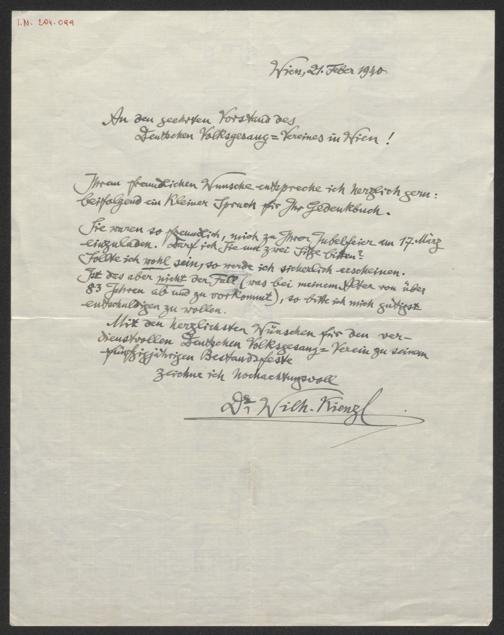 I.N. 204.099
Wien, 21. Feber 1940
An den geehrten Vorstand des
Deutschen Volksgesang=Vereines in Wien!
Ihrem freundlichen Wunsche entspreche ich herzlich gern:
beifolgend ein kleiner Spruch für Ihr Gedenkbuch.
Sie waren so freundlich, mich zu Ihrer Jubelfeier am 17. März
einzuladen. Darf ich Sie um zwei Sitze bitten?
Sollte ich wohl sein, so werde ich sicherlich erscheinen.
Ist das aber nicht der Fall (was bei meinem Alter von über
83 Jahren ab und zu vorkommt), so bitte ich mich gütigst
entschuldigen zu wollen.
Mit den herzlichsten Wünschen für den ver-
dienstvollen Deutschen Volksgesang=Verein zu seinem
fünfzigjährigen Bestandsfeste
zeichne ich hochachtungsvoll
Dr. Wilh. Kienzl